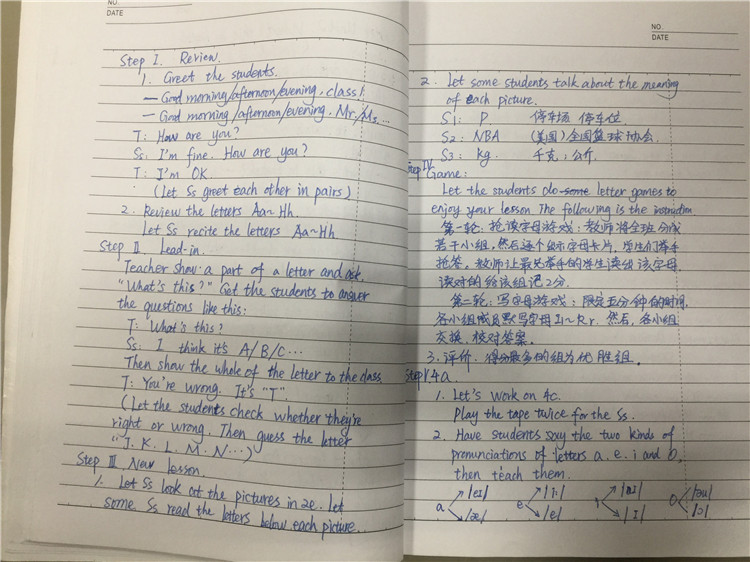 NO.
DATE
Step I. Review.
1. Greet the students.
— Good morning/afternoon/evening, class!
— Good morning/afternoon/evening. Mr./Ms....
T: How are you?
Ss: I'm fine. How are you?
T: I'm OK.
(Let Ss greet each other in pairs)
2. Review the letters Aa~Hh.
Let Ss recite the letters Aa~Hh
Step II. Lead-in.
Teacher show a part of a letter and ask.
"What's this?" Get the students to answer
the questions like this:
T: What's this?
Ss: I think it's A/B/C...
Then show the whole of the letter to the class.
T: You're wrong. It's "I".
(Let the students check whether they're
right or wrong. Then guess the letter
"J. K. L. M. N...)
Step III. New lesson
1. Let Ss look at the pictures in 2e. Let
some Ss read the letters below each picture.
NO.
DATE
2. Let some students talk about the meaning
of each picture.
S1: P. 停车场 停车位
S2: NBA (美国)全国篮球协会.
S3: kg. 千克,公斤.
Step IV
Game:
Let the students do some letter games to
enjoy your lesson. The following is the instruction
第一轮:抢读字母游戏:教师将全班分成
若干小组,然后逐个显示字母卡片,学生们举手
抢答,教师让最先举手的学生读出该字母,
读对的给该组记2分.
第二轮:写字母游戏:限定五分钟的时间,
各小组成员默写字母Ii~Rr. 然后,各小组
交换,校对答案.
3. 评价. 得分最多的组为优胜组.
Step V 4a.
1. Let's work on 4c.
Play the tape twice for the Ss.
2. Have students say the two kinds of
pronunciations of letters a. e. i and o,
then teach them.
a /eɪ/ e /i:/ i /aɪ/ o /əu/
/æ/ /e/ /ɪ/ /ɔ/